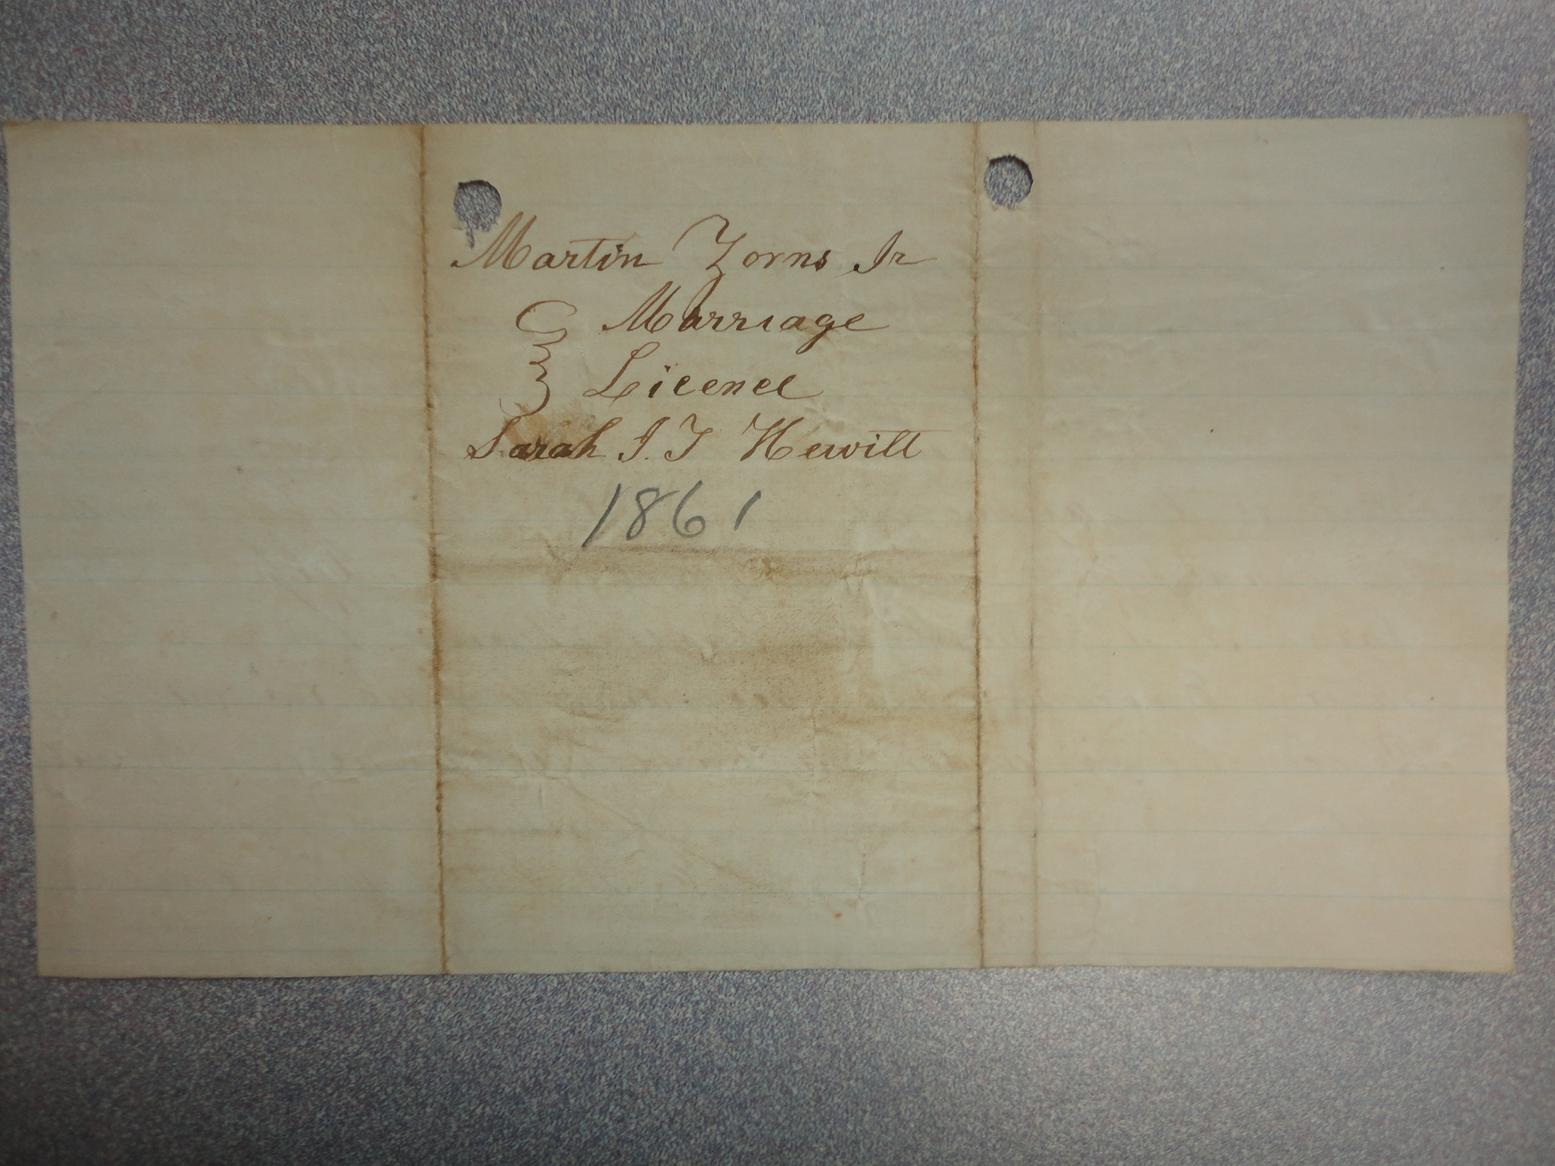 Martin Zorns Jr
Marriage
Licence
Sarah J. T Hewitt
1861